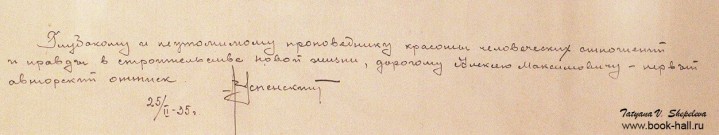 Глубокому и неутомимому проповеднику красоты человеческих отношений
и правды в строительстве новой жизни, дорогому Алексею Максимовичу – первый
авторский оттиск
Успенский
25/II-35 г.
Tatyana V. Shepeleva
www.book-hall.ru